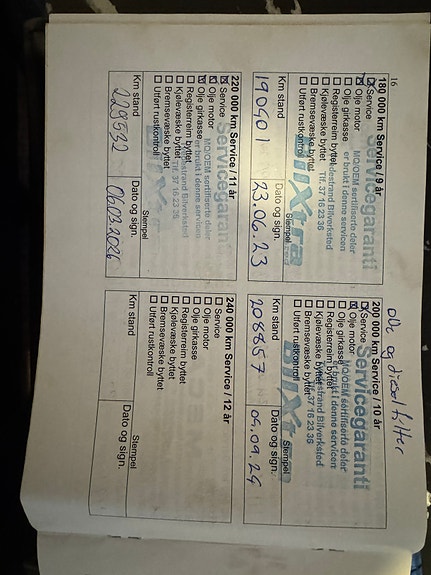 16
olje og dieselfilter
180 000 km Service / 9 år
☒ Service
☒ Olje motor
☐ Olje girkasse
☐ Registerreim byttet
☐ Kjølevæske byttet
☐ Bremsevæske byttet
☐ Utført rustkontroll
Servicegaranti
MO/OEM sertifiserte deler
er brukt i denne servicen
Bilverksted
Tlf. 37 16 23 36
BilXtra
Stempel
Km stand
Dato og sign.
23.06.23
200 000 km Service / 10 år
☒ Service
☒ Olje motor
☐ Olje girkasse
☐ Registerreim byttet
☐ Kjølevæske byttet
☐ Bremsevæske byttet
☐ Utført rustkontroll
Servicegaranti
MO/OEM sertifiserte deler
er brukt i denne servicen
Bilverksted
37 16 23 36
Stempel
Km stand
Dato og sign.
208857
09.09.24
220 000 km Service / 11 år
☒ Service
☒ Olje motor
☒ Olje girkasse
☐ Registerreim byttet
☐ Kjølevæske byttet
☐ Bremsevæske byttet
☐ Utført rustkontroll
Servicegaranti
MO/OEM sertifiserte deler
er brukt i denne servicen
Bilverksted
Tlf. 37 16 23 36
Stempel
Km stand
Dato og sign.
06.03.2026
240 000 km Service / 12 år
☐ Service
☐ Olje motor
☐ Olje girkasse
☐ Registerreim byttet
☐ Kjølevæske byttet
☐ Bremsevæske byttet
☐ Utført rustkontroll
Stempel
Km stand
Dato og sign.